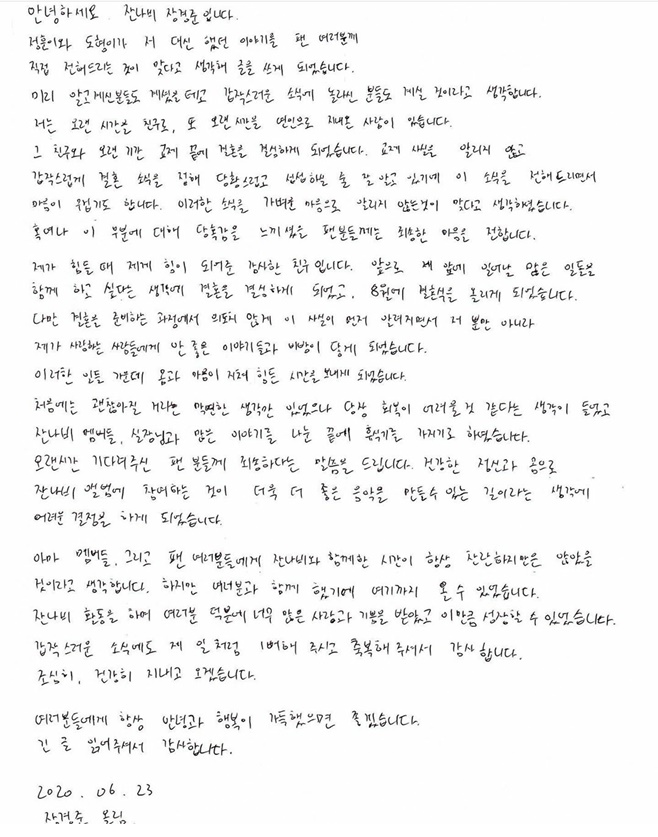 안녕하세요. 잔나비 장경준입니다.
정훈이와 도형이가 저 대신 했던 이야기를 팬 여러분께
직접 전해드리는 것이 맞다고 생각해 글을 쓰게 되었습니다.
미리 알고계신분들도 계셨을테고 갑작스러운 소식에 놀라신 분들도 계실 것이라고 생각합니다.
저는 오랜 시간을 친구로, 또 오랜 시간을 연인으로 지내온 사람이 있습니다.
그 친구와 오랜 기간 교제 끝에 결혼을 결심하게 되었습니다. 교제 사실을 알리지 않고
갑작스럽게 결혼 소식을 전해 당황스럽고 섭섭하실 줄 잘 알고 있기에 이 소식을 전해드리면서
마음이 무겁기도 합니다. 이러한 소식을 가벼운 마음으로 알리지 않는것이 맞다고 생각하였습니다.
혹여나 이 부분에 대해 당혹감을 느끼셨을 팬분들께는 죄송한 마음을 전합니다.
제가 힘들 때 제게 힘이 되어준 감사한 친구입니다. 앞으로 제 앞에 일어날 많은 일들을
함께 하고 싶다는 생각에 결혼을 결심하게 되었고, 8월에 결혼식을 올리게 되었습니다.
다만 결혼을 준비하는 과정에서 의도치 않게 이 사실이 먼저 알려지면서 저 뿐만 아니라
제가 사랑하는 사람들에게 안 좋은 이야기들과 비방이 닿게 되었습니다.
이러한 일들 가운데 몸과 마음이 지쳐 힘든 시간을 보내게 되었습니다.
처음에는 괜찮아질 거라는 막연한 생각만 있었으나 당장 회복이 어려울것 같다는 생각이 들었고
잔나비 멤버들, 실장님과 많은 이야기를 나눈 끝에 휴식기를 가지기로 하였습니다.
오랜시간 기다려주신 팬 분들께 죄송하다는 말씀을 드립니다. 건강한 정신과 몸으로
잔나비 앨범에 참여하는 것이 더욱 더 좋은 음악을 만들수 있는 길이라는 생각에
어려운 결정을 하게 되었습니다.
아마 멤버들, 그리고 팬 여러분들에게 잔나비와 함께한 시간이 항상 찬란하지만은 않았을
것이라고 생각합니다. 하지만 여러분과 함께 했기에 여기까지 올 수 있었습니다.
잔나비 활동을 하며 여러분 덕분에 너무 많은 사랑과 기쁨을 받았고 이만큼 성장할 수 있었습니다.
갑작스러운 소식에도 제 일처럼 해 주시고 축복해주셔서 감사합니다.
조심히, 건강히 지내고 오겠습니다.
여러분들에게 항상 안녕과 행복이 가득했으면 좋겠습니다.
긴 글 읽어주셔서 감사합니다.
2020. 06. 23
장경준 올림.